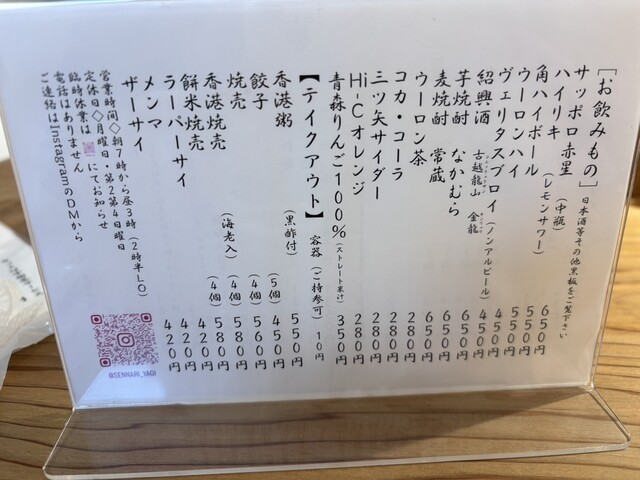 [お飲みもの] 日本酒等その他黒板をご覧下さい
サッポロ赤星 (中瓶) 650円
ハイリキ (レモンサワー) 550円
角ハイボール 550円
ウーロンハイ 450円
ヴェリタスブロイ (ノンアルビール) 450円
紹興酒 古越龍山 金龍 450円
芋焼酎 なかむら 650円
麦焼酎 常蔵 650円
ウーロン茶 280円
コカ・コーラ 280円
三ツ矢サイダー 280円
Hi-Cオレンジ 280円
青森りんご100% (ストレート果汁) 350円
【テイクアウト】 容器 (ご持参可) 10円
香港粥 (黒酢付) 550円
餃子 (5個) 450円
焼売 (4個) 560円
香港焼売 (海老入) (4個) 580円
餅米焼売 (4個) 580円
ラーパーサイ 420円
メンマ 420円
ザーサイ 420円
営業時間◇朝7時から昼3時 (2時半LO)
定休日◇月曜日・第2第4日曜日
臨時休業は にてお知らせ
電話はありません
ご連絡はInstagramのDMから
@SENNARI_YAGI